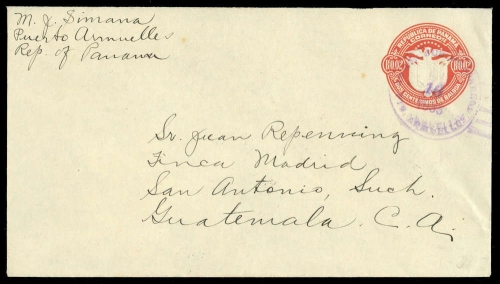 M. J. Simana
Puerto Armuelles
Rep. of Panama
REPUBLICA DE PANAMA
CORREOS
B0.02 B0.02
DOS CENTESIMOS DE BALBOA
Sr. Juan Repenning
Finca Madrid
San Antonio, Such.
Guatemala. C. A.